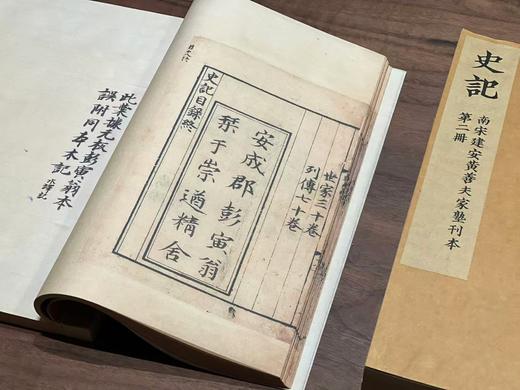 史記
南宋建安黃善夫家塾刊本
第二冊
世家三十卷
列傳七十卷
安成郡彭寅翁
栞于崇道精舍
史記目錄終
此葉據元板彭寅翁本
誤附同本木記